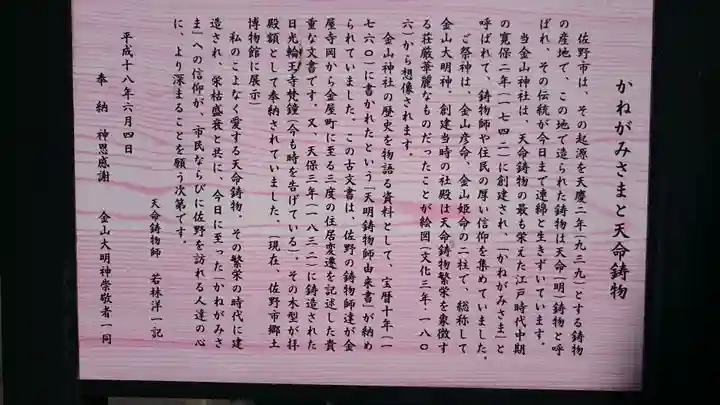 かねがみさまと天命鋳物
佐野市は、その起源を天慶二年(九三九)とする鋳物
の産地で、この地で造られた鋳物は天命(明)鋳物と呼
ばれ、その伝統が今日まで連綿と生きずいています。
当金山神社は、天命鋳物の最も栄えた江戸時代中期
の寛保二年(一七四二)に創建され、「かねがみさま」と
呼ばれて、鋳物師や住民の厚い信仰を集めていました。
ご祭神は、金山彦命、金山姫命の二柱で、総称して
金山大明神。創建当時の社殿は天命鋳物繁栄を象徴す
る荘厳華麗なものだったことが絵図(文化三年・一八〇
六)から想像されます。
金山神社の歴史を物語る資料として、宝暦十年(一
七六〇)に書かれたという「天明鋳物師由来書」が納め
られていました。この古文書は、佐野の鋳物師達が金
屋寺岡から金屋町に至る三度の住居変遷を記述した貴
重な文書です。又、天保三年(一八三二)に鋳造された
日光輪王寺梵鐘(今も時を告げている)。その木型が拝
殿額として奉納されていました。(現在、佐野市郷土
博物館に展示)
私のこよなく愛する天命鋳物。その繁栄の時代に建
造され、栄枯盛衰と共に、今日に至った「かねがみさ
ま」への信仰が、市民ならびに佐野を訪れる人達の心
に、より深まることを願う次第です。
天命鋳物師 若林洋一記
平成十八年六月四日
奉納 神恩感謝 金山大明神崇敬者一同